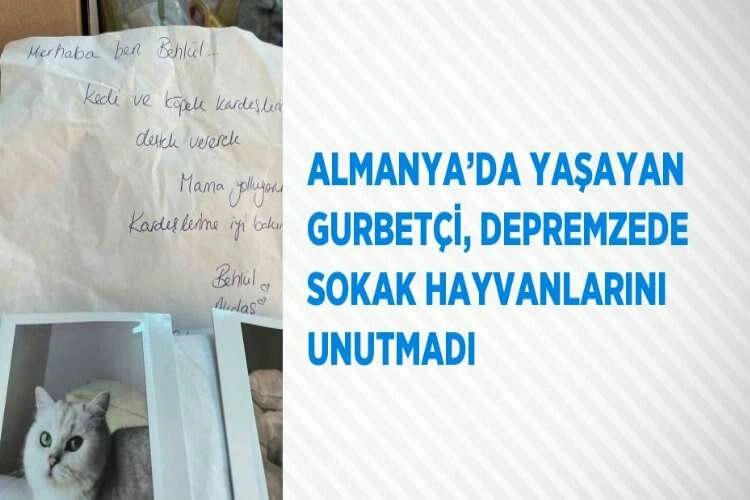 Merhaba ben Behlül...
Kedi ve köpek kardeşlerim
destek vererek
Mama yolluyorum
Kardeşlerime iyi bakın
Behlül
ALMANYA’DA YAŞAYAN
GURBETÇİ, DEPREMZEDE
SOKAK HAYVANLARINI
UNUTMADI